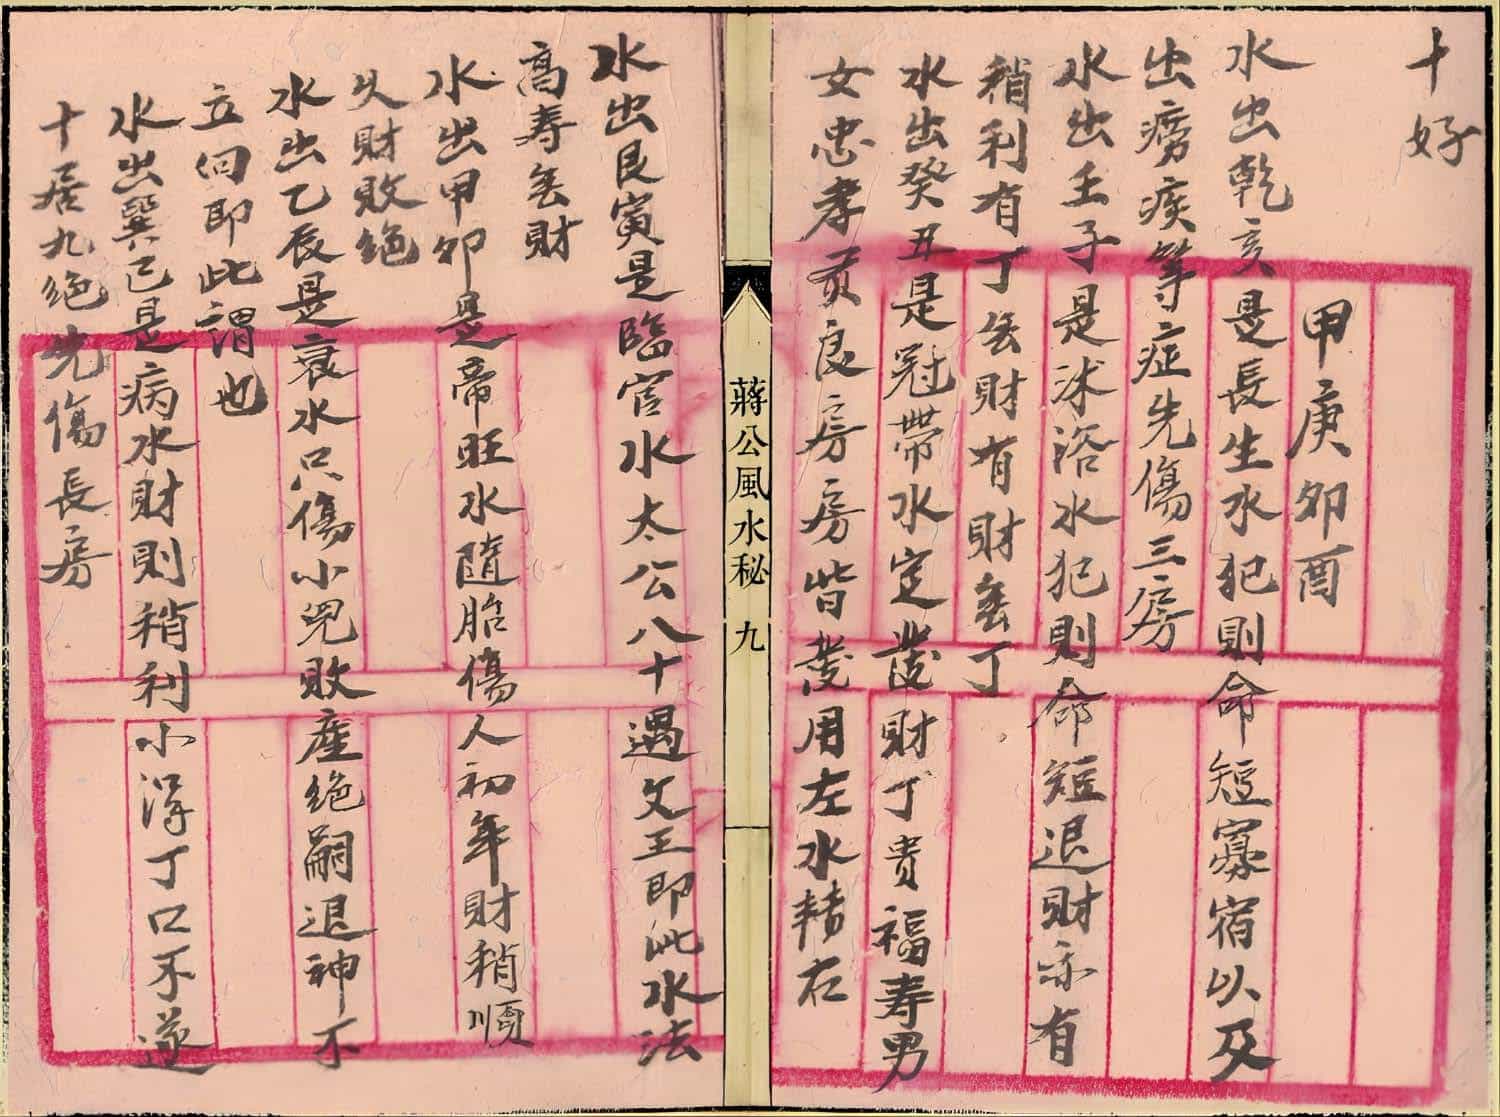 十好
甲庚卯酉
水出乾亥是長生水犯則命短寡宿以及
出癆疾等症先傷三房
水出壬子是沐浴水犯則命短退財亦有
稍利有丁無財有財無丁
水出癸丑是冠帶水定發財丁貴福寿男
女忠孝賢良房房皆發用左水轉右
蔣公風水秘 九
水出艮寅是臨官水太公八十遇文王即此水法
高寿無財
水出甲卯是帝旺水隨胎傷人初年財稍順
久財敗絕
水出乙辰是衰水只傷小兒敗產絕嗣退神不
立向即此謂也
水出巽巳是病水財則稍利小得丁口不遂
十居九絕先傷長房